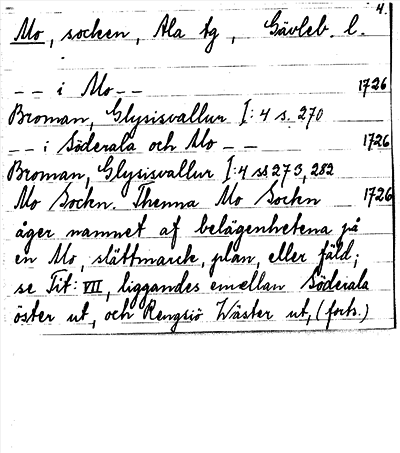 4.
Mo, socken, Ala tg, Gävleb. l.
-- i Mo -- 1726
Broman, Glysisvallur I:4 s. 270
-- i Söderala och Mo -- 1726
Broman, Glysisvallur I:4 ss 273, 282
Mo Sockn. Thenna Mo Sockn 1726
äger namnet af belägenhetena på
en Mo, slättmarck, plan, eller fäld;
se Tit: VII, liggandes emellan Söderala
öster ut, och Rengsiö Wäster ut, (forts.)